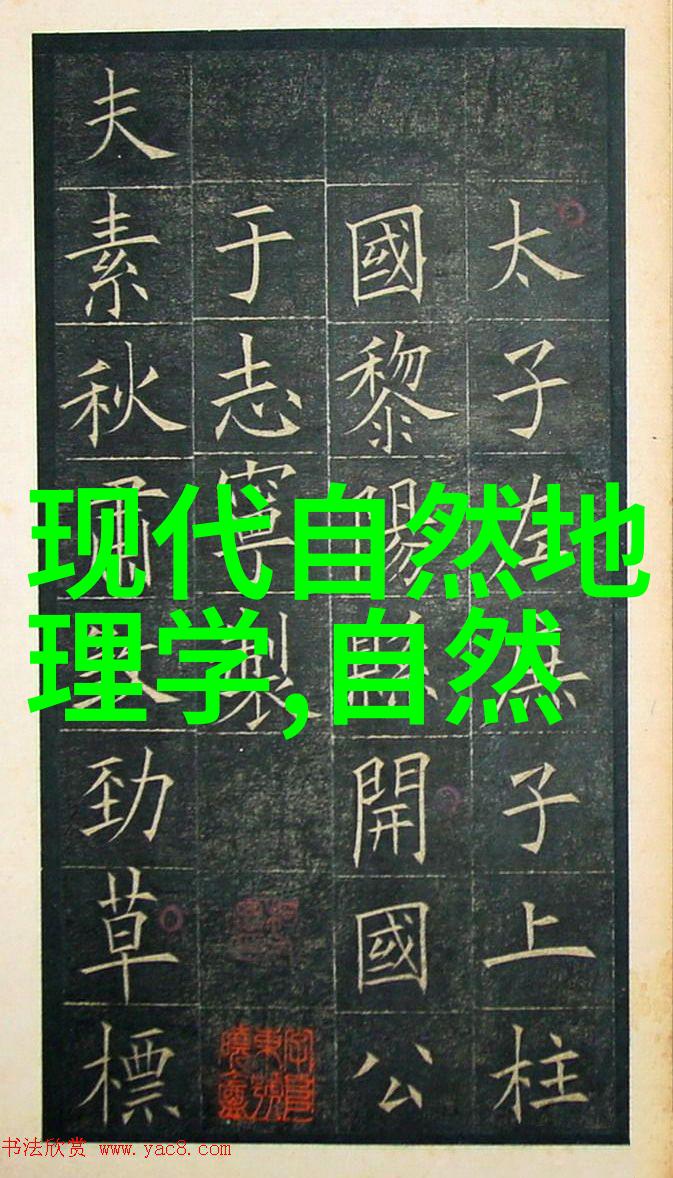 太子左庶子上柱
國黎陽縣開國公
于志寧製
夫素秋肅勁草標
现代自然地
理学,自然
书法欣赏 www.yac8.com